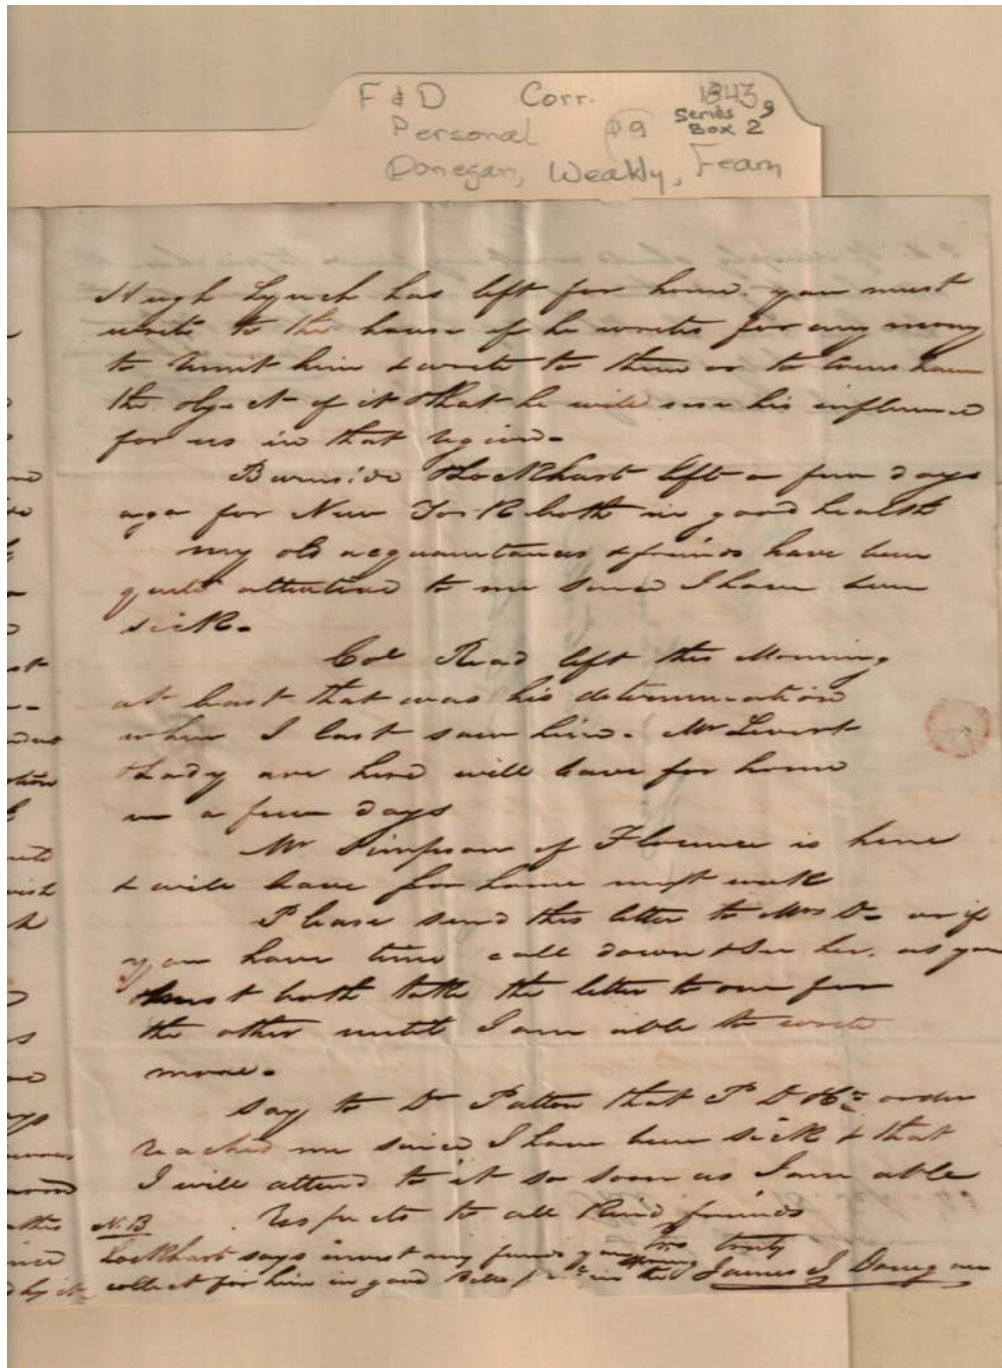 F & D Corr. 1843
Personal 9 Series 9
Box 2
Donegan, Weakly, Fearn
Hugh Lynch has left for home. you must
write to the house if he writes for any money
to remit him & write to them or to
the object of it & that he will use his influence
for us in that region.
Burnside & Lockhart left a few days
ago for New York both in good health
my old acquaintances & friends have been
quite attentive to me since I have been
sick.
Col Read left this Morning
at least that was his determination
when I last saw him. Mr Levert
& Lady are here will leave for home
in a few days
Mr Simpson of Florence is here
& will leave for home next week
Please send this letter to Mrs D. or if
you have time call down & see her. as you
must both take the letter to one for
the other until I am able to write
more.
Say to Dr Patton that P D & Co order
reached me since I have been sick & that
I will attend to it so soon as I am able
Respects to all Kind friends
N.B. Yrs truly
Lockhart says invest any funds you
collect for him in good Bills James J Donegan